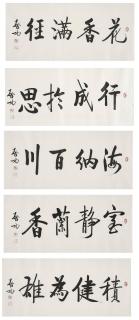 花香滿徑 启功
行成於思 启功
海納百川 启功
室靜蘭香 启功
積健為雄 启功